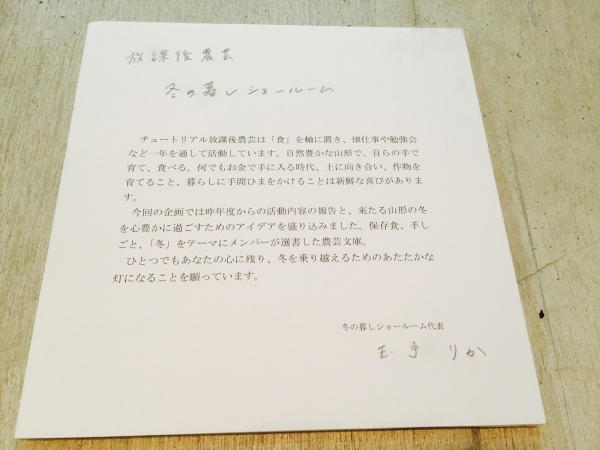 放課後農芸
冬の暮しショールーム
チュートリアル放課後農芸は「食」を軸に置き、畑仕事や勉強会
など一年を通して活動しています。自然豊かな山形で、自らの手で
育て、食べる。何でもお金で手に入る時代、土に向き合い、作物を
育てること、暮らしに手間ひまをかけることは新鮮な喜びがありま
す。
今回の企画では昨年度からの活動内容の報告と、来たる山形の冬
を心豊かに過ごすためのアイデアを盛り込みました。保存食、手し
ごと、「冬」をテーマにメンバーが選書した農芸文庫。
ひとつでもあなたの心に残り、冬を乗り越えるためのあたたかな
灯になることを願っています。
冬の暮しショールーム代表
玉手 りか